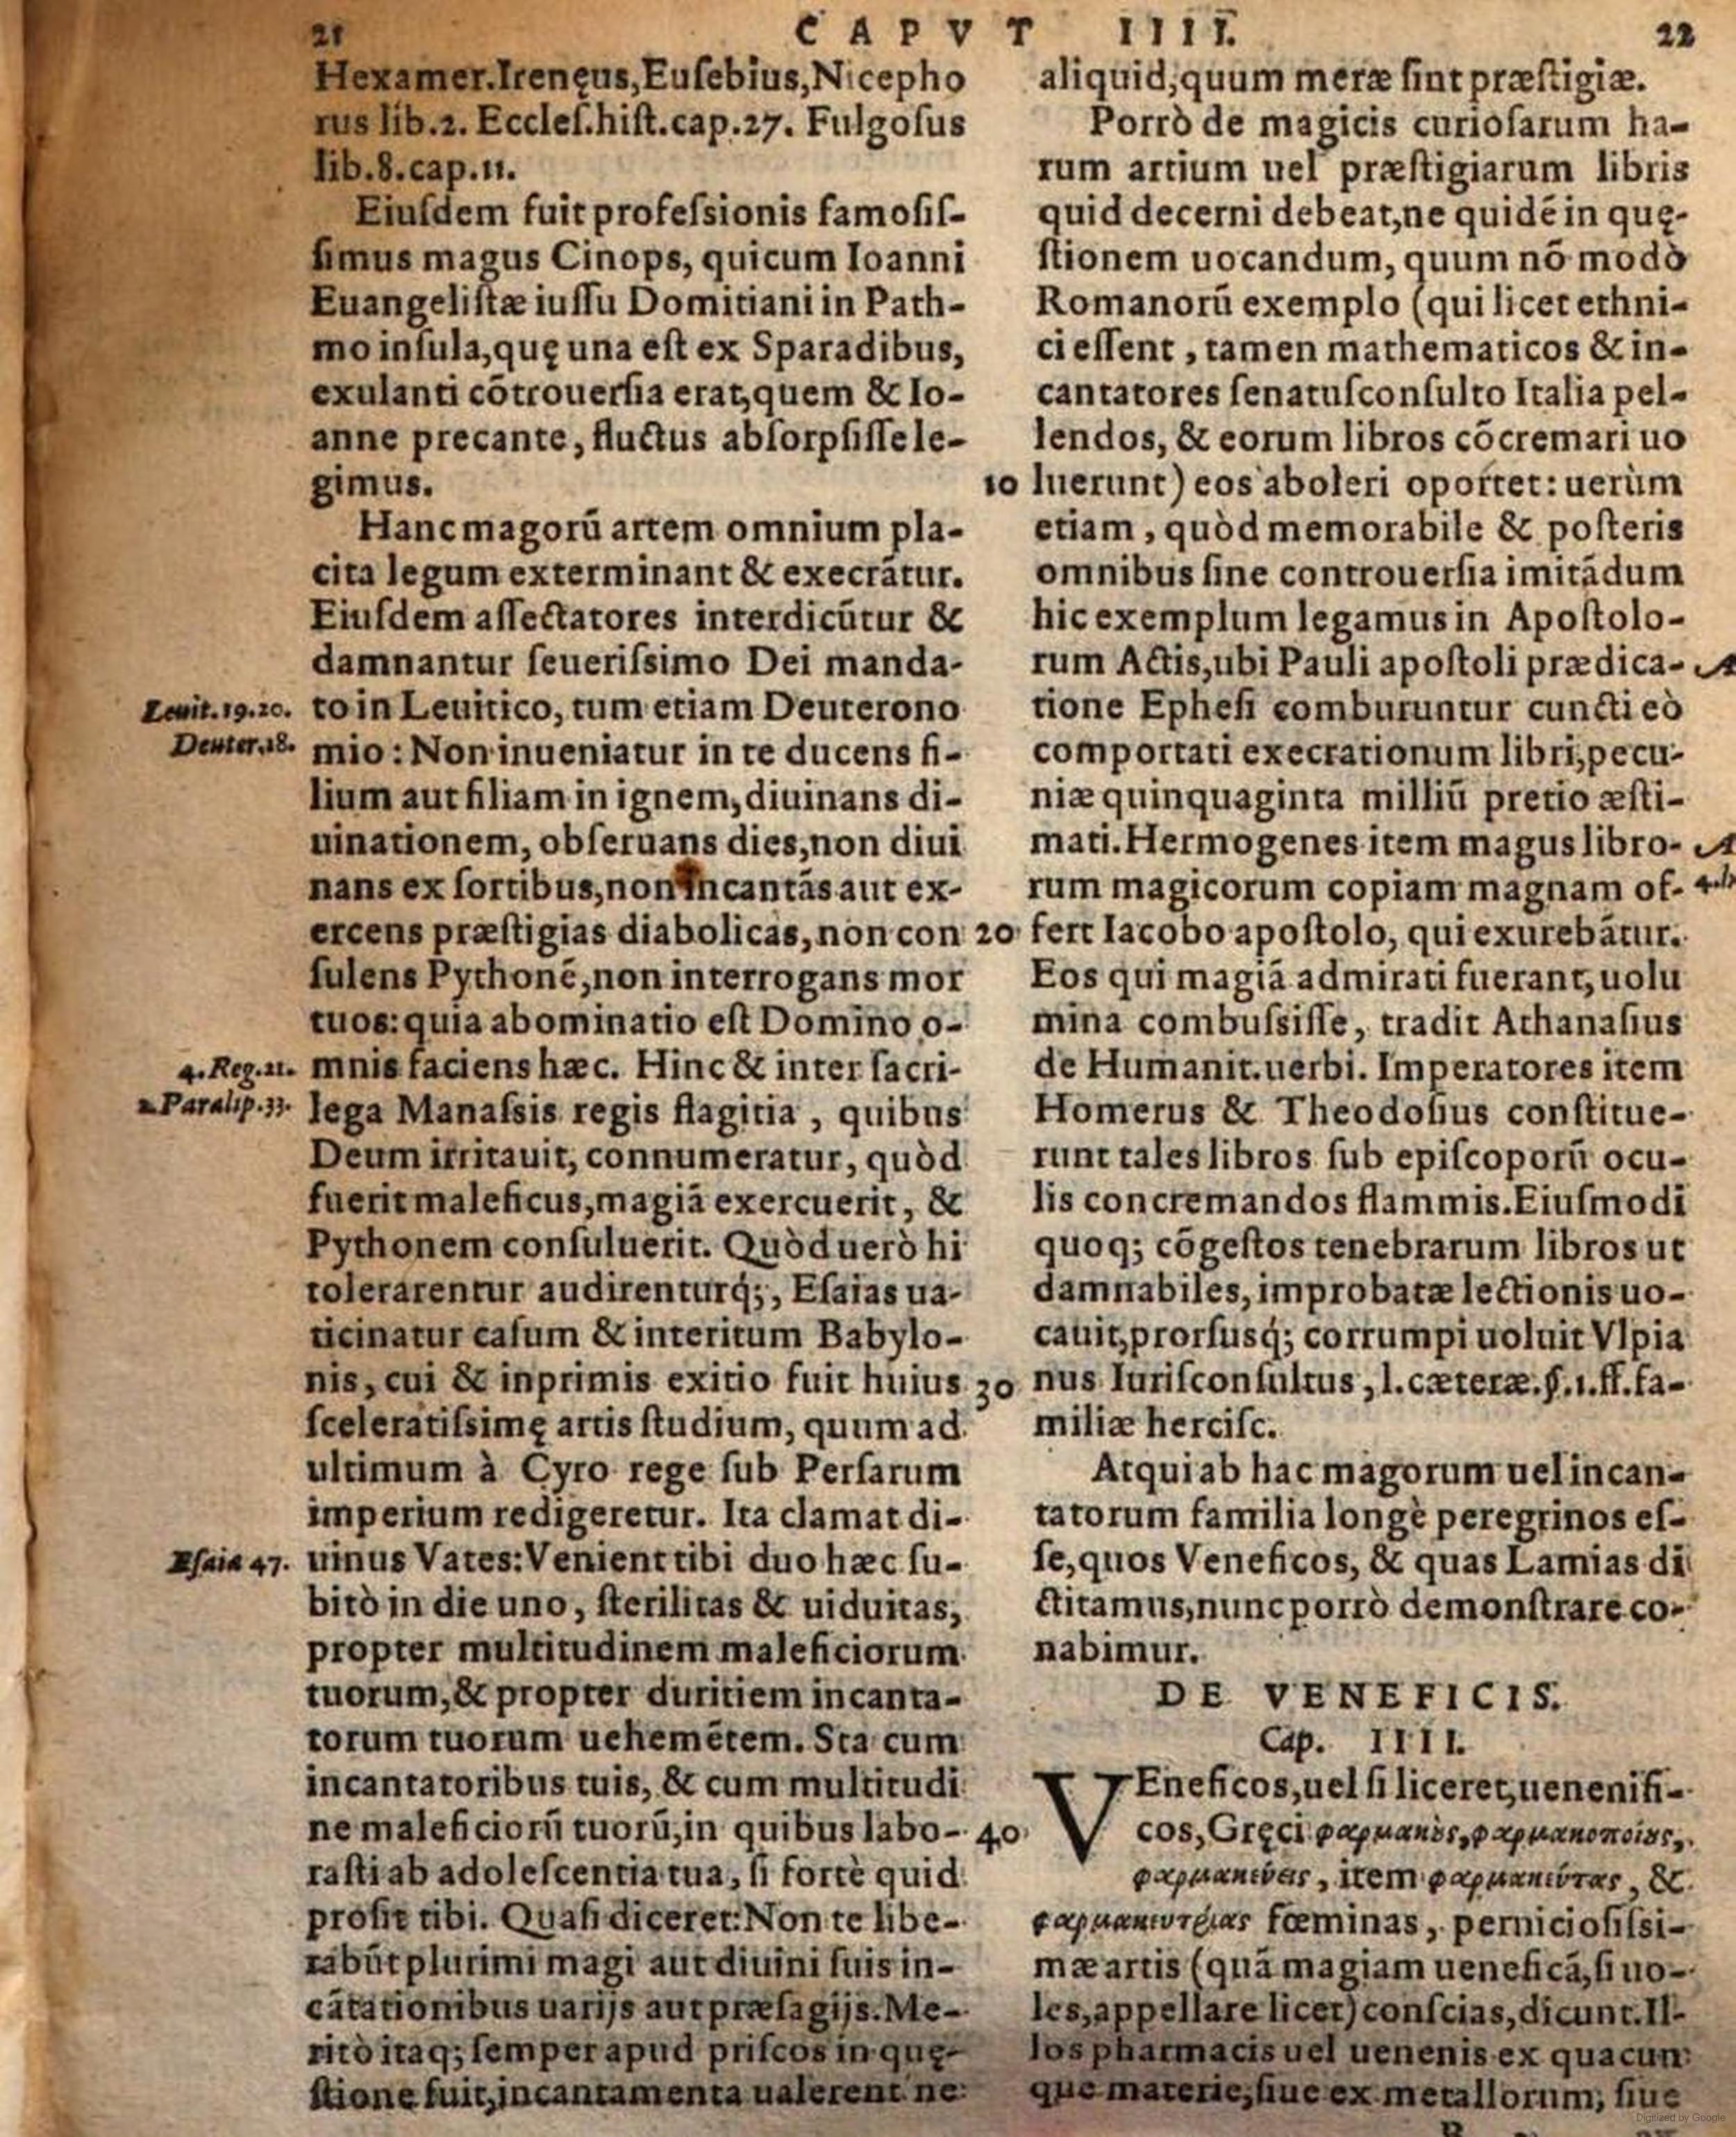 21 CAPVT IIII. 22
Hexamer.Irenęus,Euſebius,Nicepho
rus lib.2. Eccleſ.hiſt.cap.27. Fulgoſus
lib.8.cap.11.
Eiuſdem fuit profeſsionis famoſiſ-
ſimus magus Cinops, quicum Ioanni
Euangeliſtæ iuſſu Domitiani in Path-
mo inſula,quę una eſt ex Sparadibus,
exulanti cõtrouerſia erat,quem & Io-
anne precante, fluctus abſorpſiſſe le-
gimus.
Hanc magorũ artem omnium pla-
cita legum exterminant & execrãtur.
Eiuſdem aſſectatores interdicũtur &
damnantur ſeueriſsimo Dei manda-
Leuit.19.20. to in Leuitico, tum etiam Deuterono
Deuter.18. mio : Non inueniatur in te ducens fi-
lium aut filiam in ignem, diuinans di-
uinationem, obſeruans dies,non diui
nans ex ſortibus,non incantãs aut ex-
ercens præſtigias diabolicas, non con
ſulens Pythonẽ,non interrogans mor
tuos: quia abominatio eſt Domino o-
4.Reg.21. mnis faciens hæc. Hinc & inter ſacri-
2.Paralip.33. lega Manaſsis regis flagitia , quibus
Deum irritauit, connumeratur, quòd
fuerit maleficus,magiã exercuerit, &
Pythonem conſuluerit. Quòd uerò hi
tolerarentur audirenturq́;, Eſaias ua-
ticinatur caſum & interitum Babylo-
nis, cui & inprimis exitio fuit huius
ſceleratiſsimę artis ſtudium, quum ad
ultimum à Cyro rege ſub Perſarum
imperium redigeretur. Ita clamat di-
Eſaia 47. uinus Vates: Venient tibi duo hæc ſu-
bitò in die uno, ſterilitas & uiduitas,
propter multitudinem maleficiorum
tuorum,& propter duritiem incanta-
torum tuorum uehemẽtem. Sta cum
incantatoribus tuis, & cum multitudi
ne maleficiorũ tuorũ,in quibus labo-
raſti ab adoleſcentia tua, ſi fortè quid
profit tibi. Quaſi diceret: Non te libe-
rabũt plurimi magi aut diuini ſuis in-
cãtationibus uarijs aut præſagijs. Me-
ritò itaq; ſemper apud priſcos in quę-
ſtione fuit,incantamenta ualerent ne
aliquid,quum meræ ſint præſtigiæ.
Porrò de magicis curioſarum ha-
rum artium uel præſtigiarum libris
quid decerni debeat,ne quidẽ in quę-
ſtionem uocandum, quum nõ modò
Romanorũ exemplo (qui licet ethni-
ci eſſent , tamen mathematicos & in-
cantatores ſenatuſconſulto Italia pel-
lendos, & eorum libros cõcremari uo
10 luerunt) eos aboleri oportet: uerùm
etiam , quòd memorabile & poſteris
omnibus ſine controuerſia imitãdum
hic exemplum legamus in Apoſtolo-
rum Actis,ubi Pauli apoſtoli prædica-
tione Epheſi comburuntur cuncti eò
comportati execrationum libri,pecu-
niæ quinquaginta milliũ pretio æſti-
mati. Hermogenes item magus libro-
rum magicorum copiam magnam of-
20 fert Iacobo apoſtolo, qui exurebãtur.
Eos qui magiã admirati fuerant, uolu
mina combuſsiſſe, tradit Athanaſius
de Humanit.uerbi. Imperatores item
Homerus & Theodoſius conſtitue-
runt tales libros ſub epiſcoporũ ocu-
lis concremandos flammis. Eiuſmodi
quoq; cõgeſtos tenebrarum libros ut
damnabiles, improbatæ lectionis uo-
cauit,prorſusq́; corrumpi uoluit Vlpia
30 nus Iuriſconſultus , l.cæteræ.§.1.ff.fa-
miliæ herciſc.
Atqui ab hac magorum uel incan-
tatorum familia longè peregrinos eſ-
ſe,quos Veneficos, & quas Lamias di
ctitamus,nunc porrò demonſtrare co-
nabimur.
DE VENEFICIS.
Cap. IIII.
VEneficos,uel ſi liceret,uenenifi-
40 cos,Gręci φαρμακοὺς,φαρμακοποίους,
φαρμακεύεις , item φαρμακευτὰς , &
φαρμακευτρίας fœminas , pernicioſiſsi-
mæ artis (quã magiam ueneficã,ſi uo-
les,appellare licet) conſcias, dicunt. Il-
los pharmacis uel uenenis ex quacun
que materie,ſiue ex metallorum, ſiue
Digitized by Google